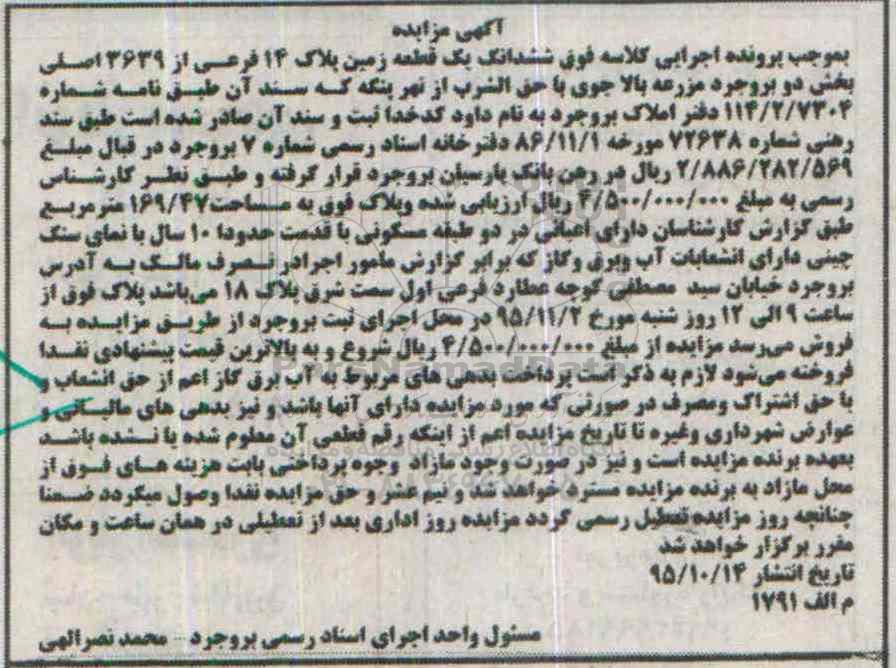 آگهی مزایده
بموجب پرونده اجرایی کلاسه فوق ششدانگ یک قطعه زمین پلاک ۱۴ فرعی از ۳۶۳۹ اصلی
بخش دو بروجرد مزرعه بالا جوی با حق الشرب از نهر پنکه که سند آن طبق نامه شماره
۱۱۴/۲/۷۳۰۴ دفتر املاک بروجرد به نام داود کدخدا ثبت و سند آن صادر شده است طبق سند
رهنی شماره ۷۲۶۳۸ مورخه ۸۶/۱۱/۱ دفترخانه اسناد رسمی شماره ۷ بروجرد در قبال مبلغ
۲/۸۸۶/۲۸۲/۵۶۹ ریال در رهن بانک پارسیان بروجرد قرار گرفته و طبق نظر کارشناس
رسمی به مبلغ ۴/۵۰۰/۰۰۰/۰۰۰ ریال ارزیابی شده وپلاک فوق به مساحت۱۶۹/۴۷ مترمربع
طبق گزارش کارشناسان دارای اعیانی در دو طبقه مسکونی با قدمت حدودا ۱۰ سال با نمای سنگ
چینی دارای انشعابات آب وبرق وگاز که برابر گزارش مامور اجرادر تصرف مالک به آدرس
بروجرد خیابان سید مصطفی کوچه عطارد فرعی اول سمت شرق پلاک ۱۸ می‌باشد پلاک فوق از
ساعت ۹ الی ۱۲ روز شنبه مورخ ۹۵/۱۱/۲ در محل اجرای ثبت بروجرد از طریق مزایده به
فروش می‌رسد مزایده از مبلغ ۴/۵۰۰/۰۰۰/۰۰۰ ریال شروع و به بالاترین قیمت پیشنهادی نقدا
فروخته می‌شود لازم به ذکر است پرداخت بدهی های مربوط به آب برق گاز اعم از حق انشعاب و
با حق اشتراک ومصرف در صورتی که مورد مزایده دارای آنها باشد و نیز بدهی های مالیاتی و
عوارض شهرداری وغیره تا تاریخ مزایده اعم از اینکه رقم قطعی آن معلوم شده یا نشده باشد
بعهده برنده مزایده است و نیز در صورت وجود مازاد وجوه پرداختی بابت هزینه های فوق از
محل مازاد به برنده مزایده مسترد خواهد شد و نیم عشر و حق مزایده نقدا وصول میگردد ضمنا
چنانچه روز مزایده تعطیل رسمی گردد مزایده روز اداری بعد از تعطیلی در همان ساعت و مکان
مقرر برگزار خواهد شد
تاریخ انتشار ۹۵/۱۰/۱۴
م الف ۱۷۹۱
مسئول واحد اجرای اسناد رسمی بروجرد - محمد نصرالهی
ParsNamadData